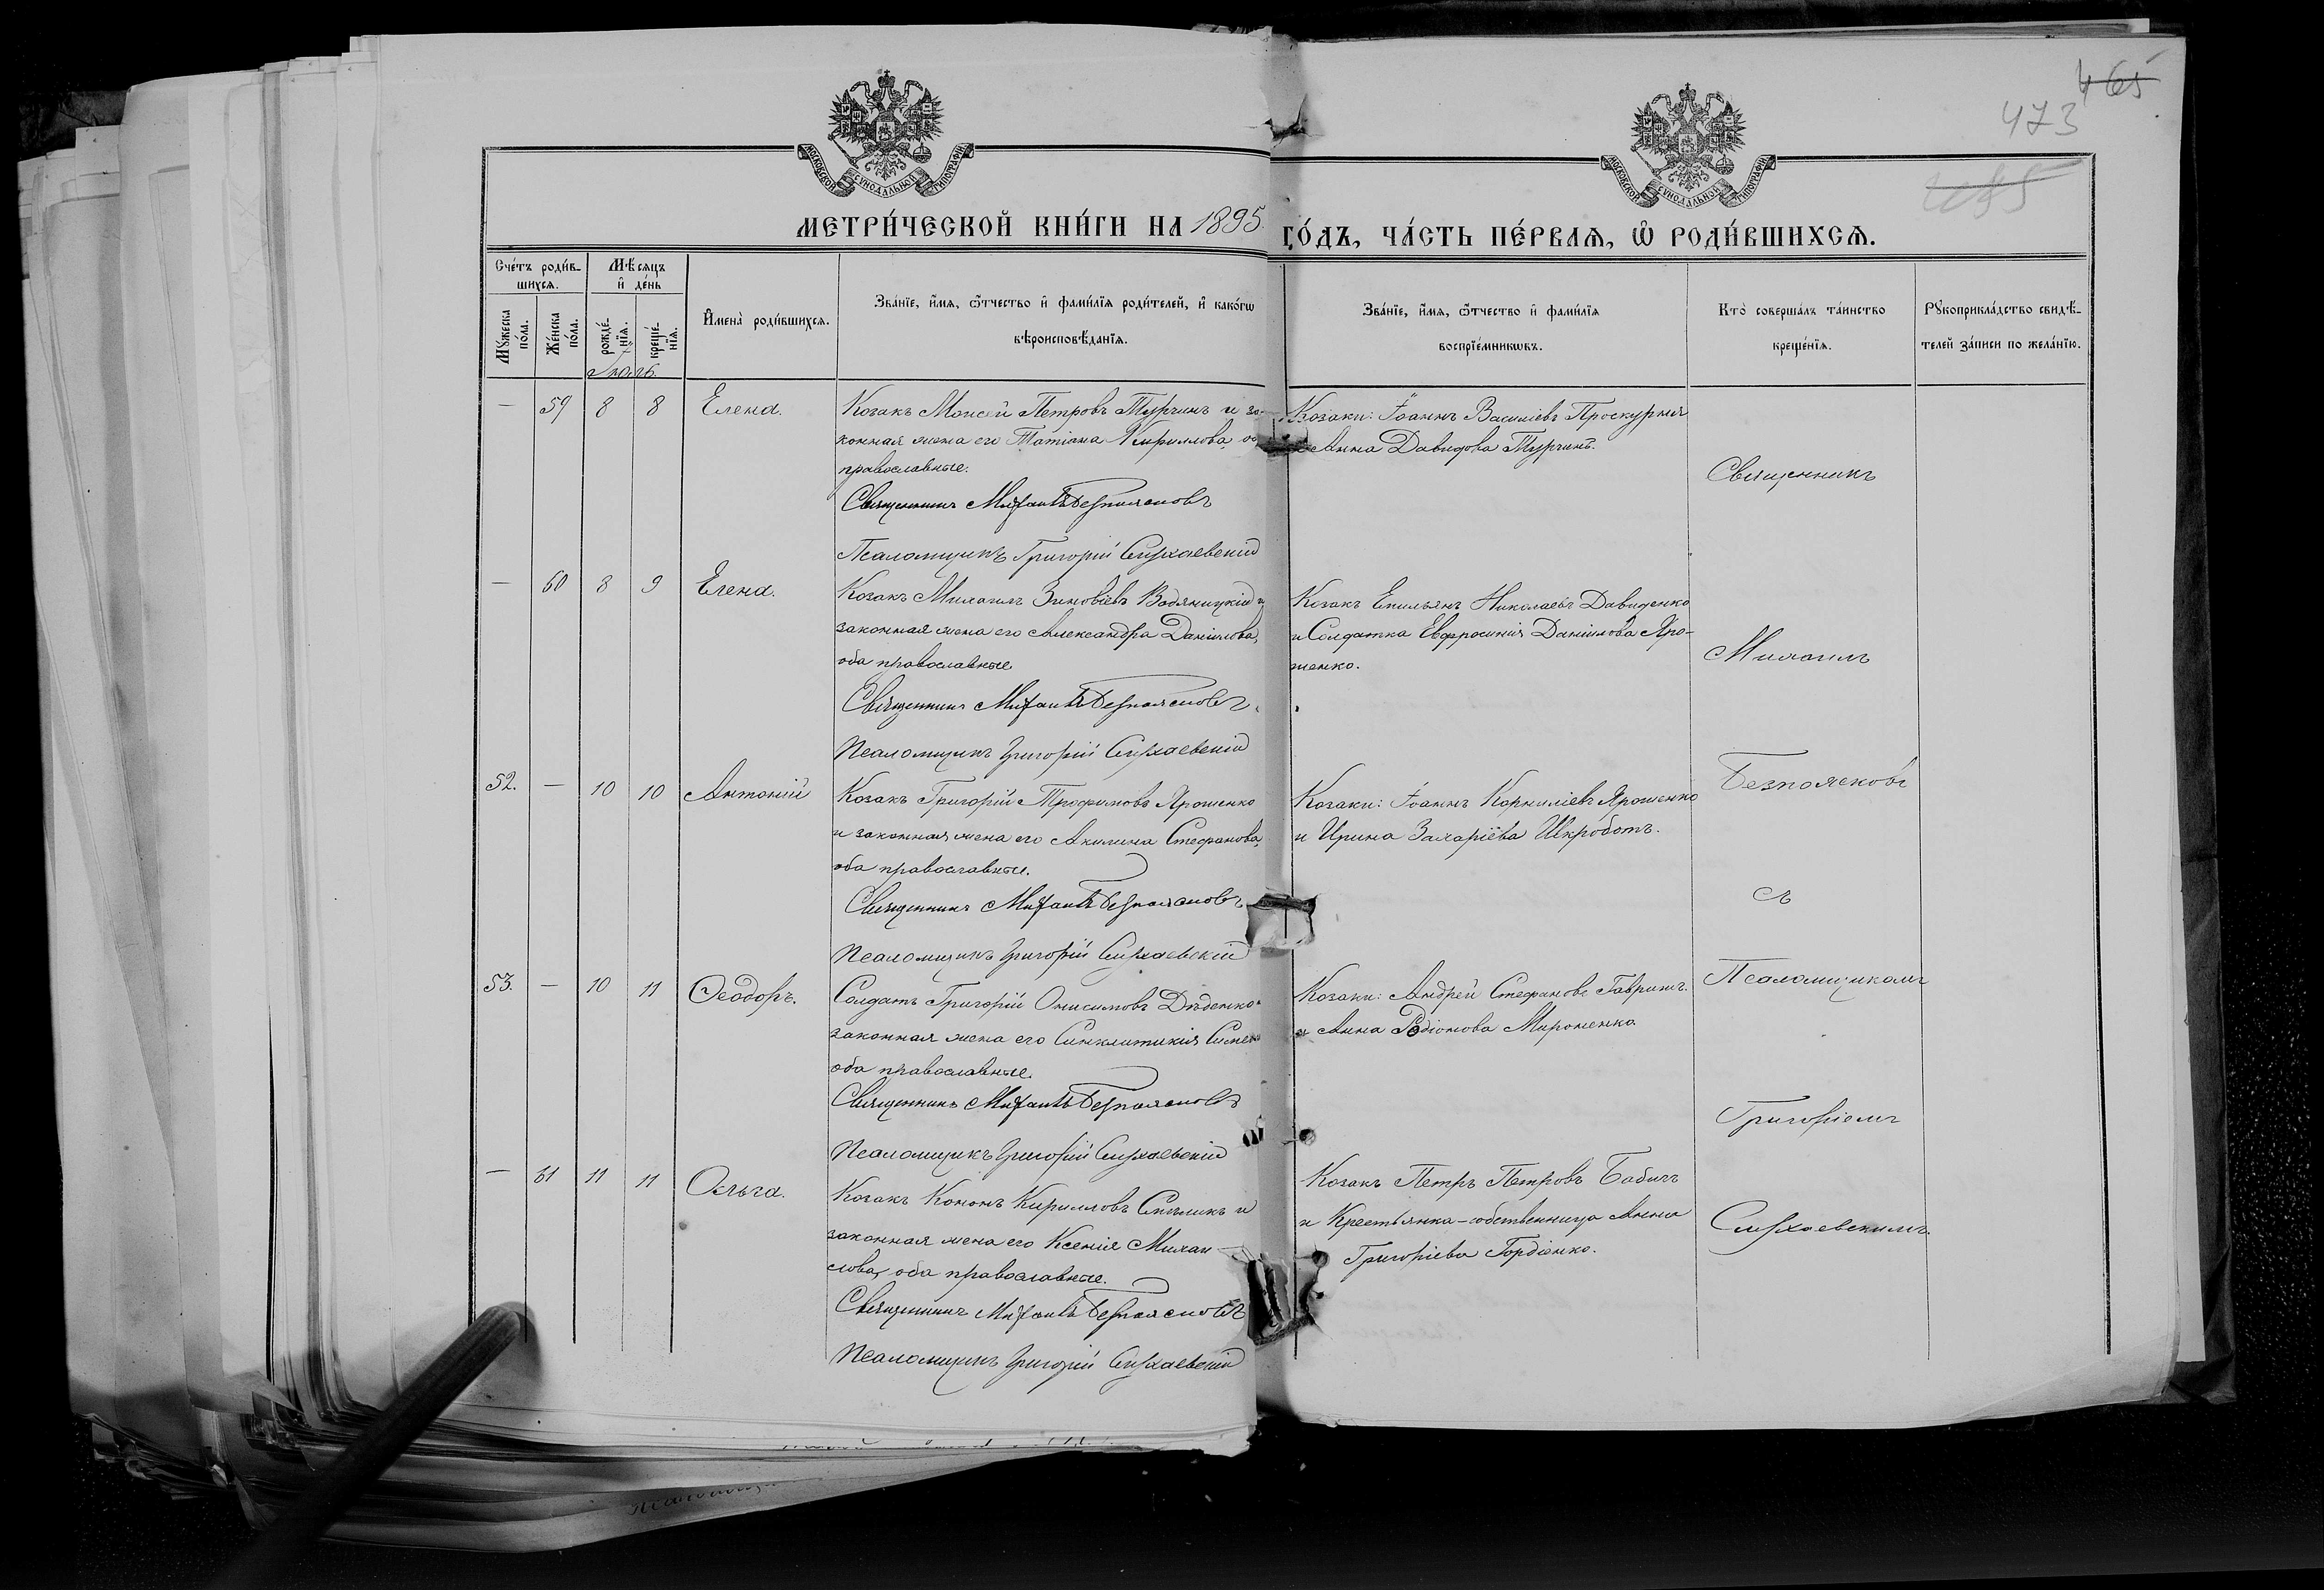 465
473
МОСКОВСКОЙ СѴНОДАЛЬНОЙ ТИПОГРАФІИ
МОСКОВСКОЙ СѴНОДАЛЬНОЙ ТИПОГРАФІИ
МЕТРИ́ЧЕСКОЙ КНИ́ГИ НА 1895. ГО́ДЪ, ЧА́СТЬ ПЕ́РВАЯ, Ѿ РОДИ́ВШИХСЯ.
Сче́тъ роди́в-
шихся.
Мꙋжеска по́ла.
Же́нска по́ла.
Мѣ́сяцъ
и҆ де́нь
рожде́-
нїя.
креще́-
нїя.
И҆мена̀ роди́вшихся.
Зва́нїе, и҆́мя, ѻ҆́тчество и҆ фами́лїя роди́телей, и҆ како́гѡ
вѣроисповѣ́данїя.
Зва́нїе, и҆́мя, ѻ҆́тчество и҆ фами́лїя
воспрїе́мникѡвъ.
Кто̀ соверша́лъ та́инство
креще́нїя.
Рꙋкоприкла́дство свидѣ́-
телей за́писи по жела́нїю.
Іюль.
— 59 8 8 Елена.
Козакъ Моисей Петровъ Турчинъ и за-
конная жена его Татіана Кириллова, оба
православные.
Священникъ Михаилъ Безпоясковъ
Псаломщикъ Григорій
Козаки: Іоаннъ Василіевъ Проскурня
и Анна Давидова Турчинъ.
— 60 8 9 Елена.
Козакъ Михаилъ Зиновіевъ Водяницкій и
законная жена его Александра Даніилова,
оба православные
Священникъ Михаилъ Безпоясковъ
Псаломщикъ Григорій
Козакъ Емильянъ Николаевъ Давиденко
и Солдатка Евфросинія Даніилова Яро-
шенко.
52. — 10 10 Антоній
Козакъ Григорій Трофимовъ Ярошенко
и законная жена его Акилина Стефанова,
оба православные.
Священникъ Михаилъ Безпоясковъ
Псаломщикъ Григорій
Козаки: Іоаннъ Корниліевъ Ярошенко
и Ирина Захаріева Шкроботъ.
53. — 10 11 Ѳеодоръ.
Солдатъ Григорій Онисимовъ Дѣденко
законная жена его Синклитикія
оба православные.
Священникъ Михаилъ Безпоясковъ
Псаломщикъ Григорій
Козаки: Андрей Стефановъ Гавришъ
и Анна Родіонова Мироненко
— 61 11 11 Ольга.
Козакъ Кононъ Кирилловъ и
законная жена его Ксенія Михаи-
лова, оба православные.
Священникъ Михаилъ Безпоясковъ
Псаломщикъ Григорій
Козакъ Петръ Петровъ Бабичъ
и Крестьянка-собственница Анна
Григоріева Гордіенко.
Священникъ
Михаилъ
Безпоясковъ
съ
Псаломщикомъ
Григоріемъ